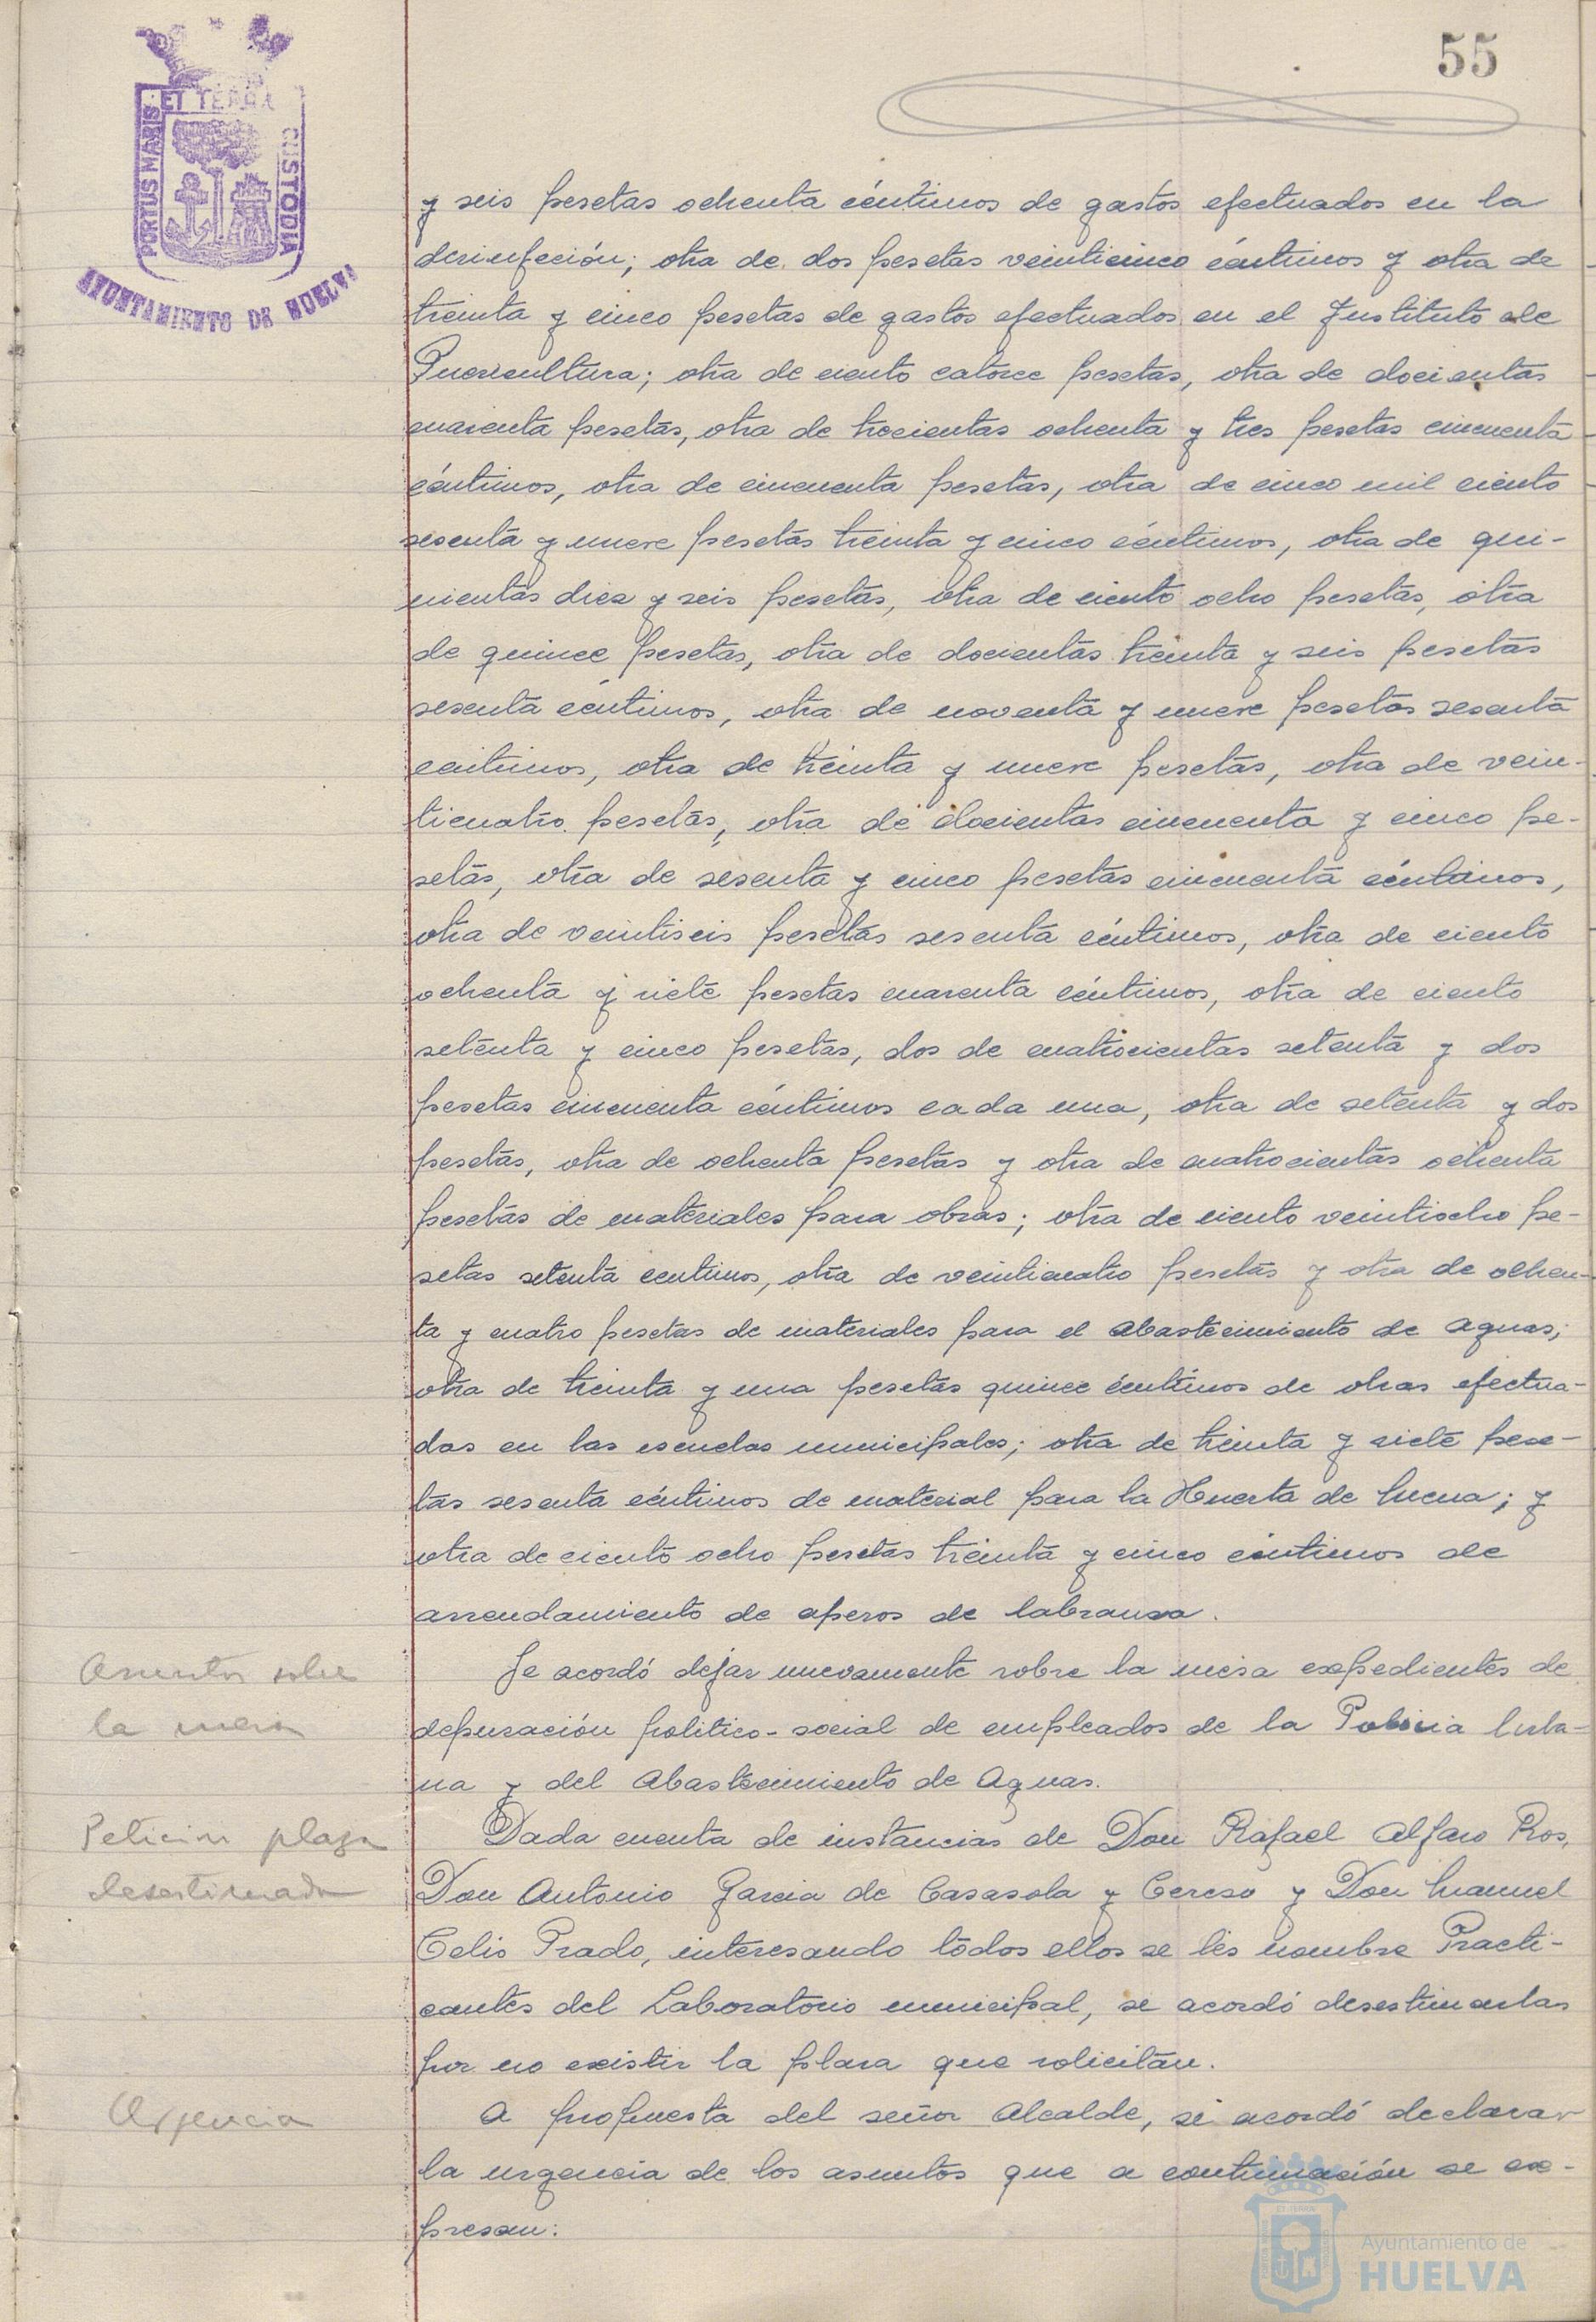 55
ET TERRA
PORTUS MARIS
CUSTODIA
AYUNTAMIENTO DE HUELVA
y seis pesetas ochenta céntimos de gastos efectuados en la
desinfección; otra de dos pesetas veinticinco céntimos y otra de
treinta y cinco pesetas de gastos efectuados en el Instituto de
Puericultura; otra de ciento catorce pesetas, otra de docientas
cuarenta pesetas, otra de trecientas ochenta y tres pesetas cincuenta
céntimos, otra de cincuenta pesetas, otra de cinco mil ciento
sesenta y nueve pesetas treinta y cinco céntimos, otra de qui-
nientas diez y seis pesetas, otra de ciento ocho pesetas, otra
de quince pesetas, otra de docientas treinta y seis pesetas
sesenta céntimos, otra de noventa y nueve pesetas sesenta
céntimos, otra de treinta y nueve pesetas, otra de vein-
ticuatro pesetas, otra de docientas cincuenta y cinco pe-
setas, otra de sesenta y cinco pesetas cincuenta céntimos,
otra de veintiseis pesetas sesenta céntimos, otra de ciento
ochenta y siete pesetas cuarenta céntimos, otra de ciento
setenta y cinco pesetas, dos de cuatrocientas setenta y dos
pesetas cincuenta céntimos cada una, otra de setenta y dos
pesetas, otra de ochenta pesetas y otra de cuatrocientas ochenta
pesetas de materiales para obras; otra de ciento veintiocho pe-
setas setenta centimos, otra de veinticuatro pesetas y otra de ochen-
ta y cuatro pesetas de materiales para el abastecimiento de aguas;
otra de treinta y una pesetas quince céntimos de obras efectua-
das en las escuelas municipales; otra de treinta y siete pese-
tas sesenta céntimos de material para la Huerta de Mena; y
otra de ciento ocho pesetas treinta y cinco céntimos de
arrendamiento de aperos de labranza.
Asuntos sobre
la mesa
Se acordó dejar nuevamente sobre la mesa expedientes de
depuración politico-social de empleados de la Policia Urba-
na y del Abastecimiento de Aguas.
Peticion plaza
desestimada
Dada cuenta de instancias de Don Rafael Alfaro Ros,
Don Antonio Garcia de Casasola y Cerezo y Don Manuel
Celis Prado, interesando todos ellos se les nombre Practi-
cantes del Laboratorio municipal, se acordó desestimarlas
por no existir la plaza que solicitan.
Urgencia
A propuesta del señor Alcalde, se acordó declarar
la urgencia de los asuntos que a continuación se ex-
presan:
Ayuntamiento de
HUELVA